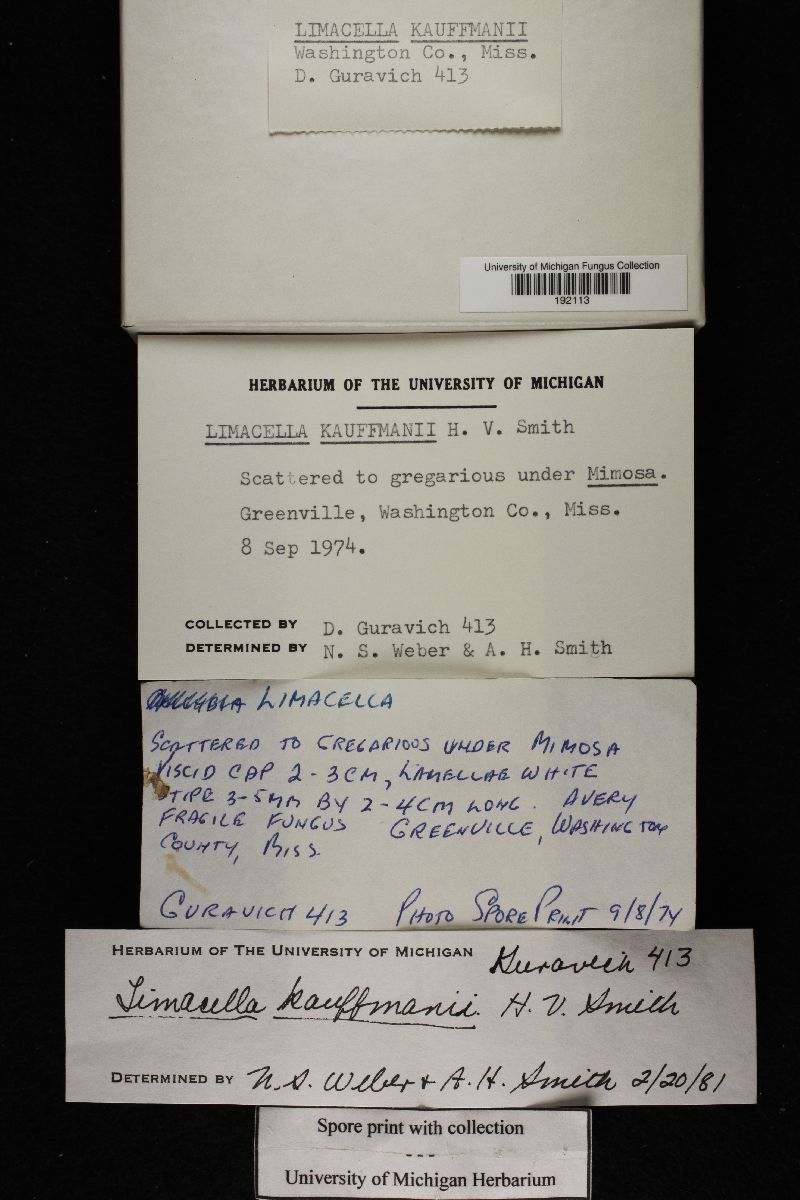 LIMACELLA KAUFFMANII
Washington Co., Miss.
D. Guravich 413
University of Michigan Fungus Collection
192113
HERBARIUM OF THE UNIVERSITY OF MICHIGAN
LIMACELLA KAUFFMANII H. V. Smith
Scattered to gregarious under Mimosa.
Greenville, Washington Co., Miss.
8 Sep 1974.
COLLECTED BY D. Guravich 413
DETERMINED BY N. S. Weber & A. H. Smith
LIMACELLA
SCATTERED TO GREGARIOUS UNDER MIMOSA
VISCID CAP 2-3CM, LAMELLAE WHITE
STIPE 3-5MM BY 2-4CM LONG. A VERY
FRAGILE FUNGUS GREENVILLE, WASHINGTON
COUNTY, MISS.
GURAVICH 413 PHOTO SPORE PRINT 9/8/74
HERBARIUM OF THE UNIVERSITY OF MICHIGAN Guravich 413
Limacella kauffmanii H. V. Smith
DETERMINED BY N. S. Weber + A. H. Smith 2/20/81
Spore print with collection
---
University of Michigan Herbarium